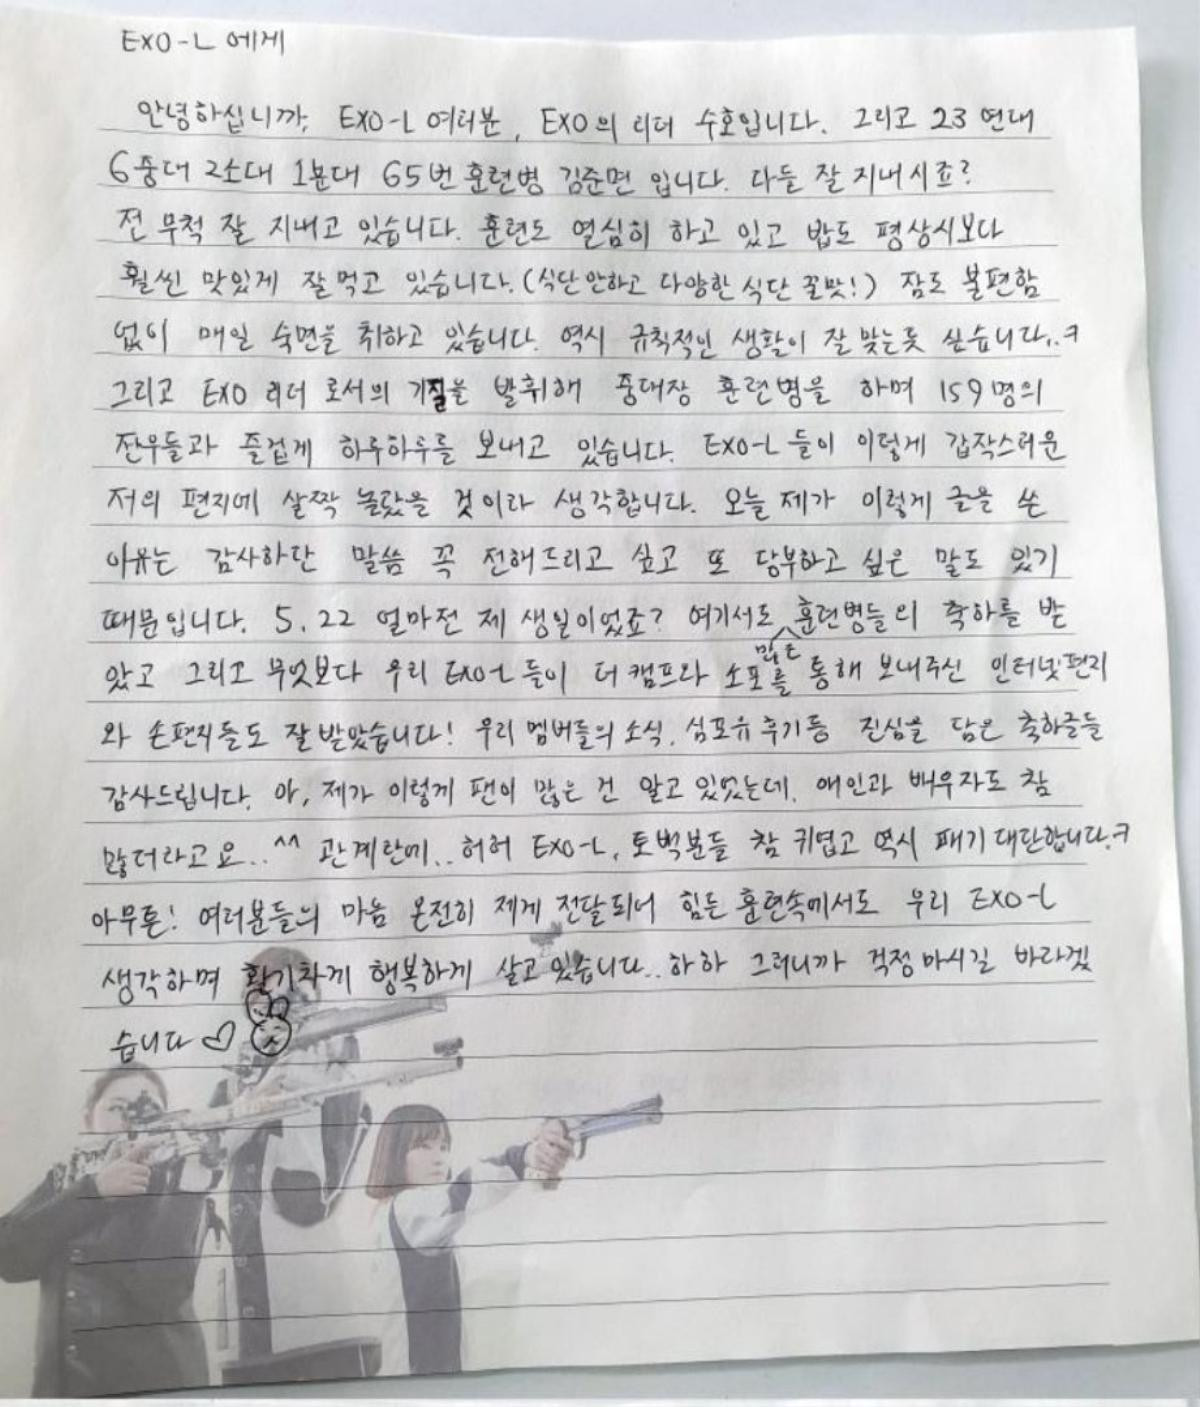 EXO-L 에게
안녕하십니까, EXO-L 여러분, EXO의 리더 수호입니다. 그리고 23연대
6중대 2소대 1분대 65번 훈련병 김준면 입니다. 다들 잘 지내시죠?
전 무척 잘 지내고 있습니다. 훈련도 열심히 하고 있고 밥도 평상시보다
훨씬 맛있게 잘먹고 있습니다.(식단안하고 다양한 식단 꿀맛!) 잠도 불편함
없이 매일 숙면을 취하고 있습니다. 역시 규칙적인 생활이 잘 맞는듯 싶습니다..ㅋ
그리고 EXO 리더 로서의 기질을 발휘해 중대장 훈련병을 하며 159명의
전우들과 즐겁게 하루하루를 보내고 있습니다. EXO-L 들이 이렇게 갑작스러운
저의 편지에 살짝 놀랐을 것이라 생각합니다. 오늘 제가 이렇게 글을 쓴
이유는 감사하단 말씀 꼭 전해드리고 싶고 또 당부하고 싶은 말도 있기
때문입니다. 5.22 얼마전 제 생일이었죠? 여기서도 많은 훈련병들의 축하를 받
았고 그리고 무엇보다 우리 EXO-L들이 더 캠프와 소포를 통해 보내주신 인터넷편지
와 손편지들도 잘 받았습니다! 우리 멤버들의 소식, 심포유 후기등 진심을 담은 축하글들
감사드립니다. 아, 제가 이렇게 팬이 많은 건 알고 있었는데, 애인과 배우자도 참
많더라고요..^^ 관계란에.. 허허 EXO-L, 토벅분들 참 귀엽고 역시 패기 대단합니다.ㅋ
아무튼! 여러분들의 마음 온전히 제게 전달되어 힘든 훈련속에서도 우리 EXO-L
생각하며 활기차게 행복하게 살고 있습니다.. 하하 그러니까 걱정 마시길 바라겠
습니다 ♡